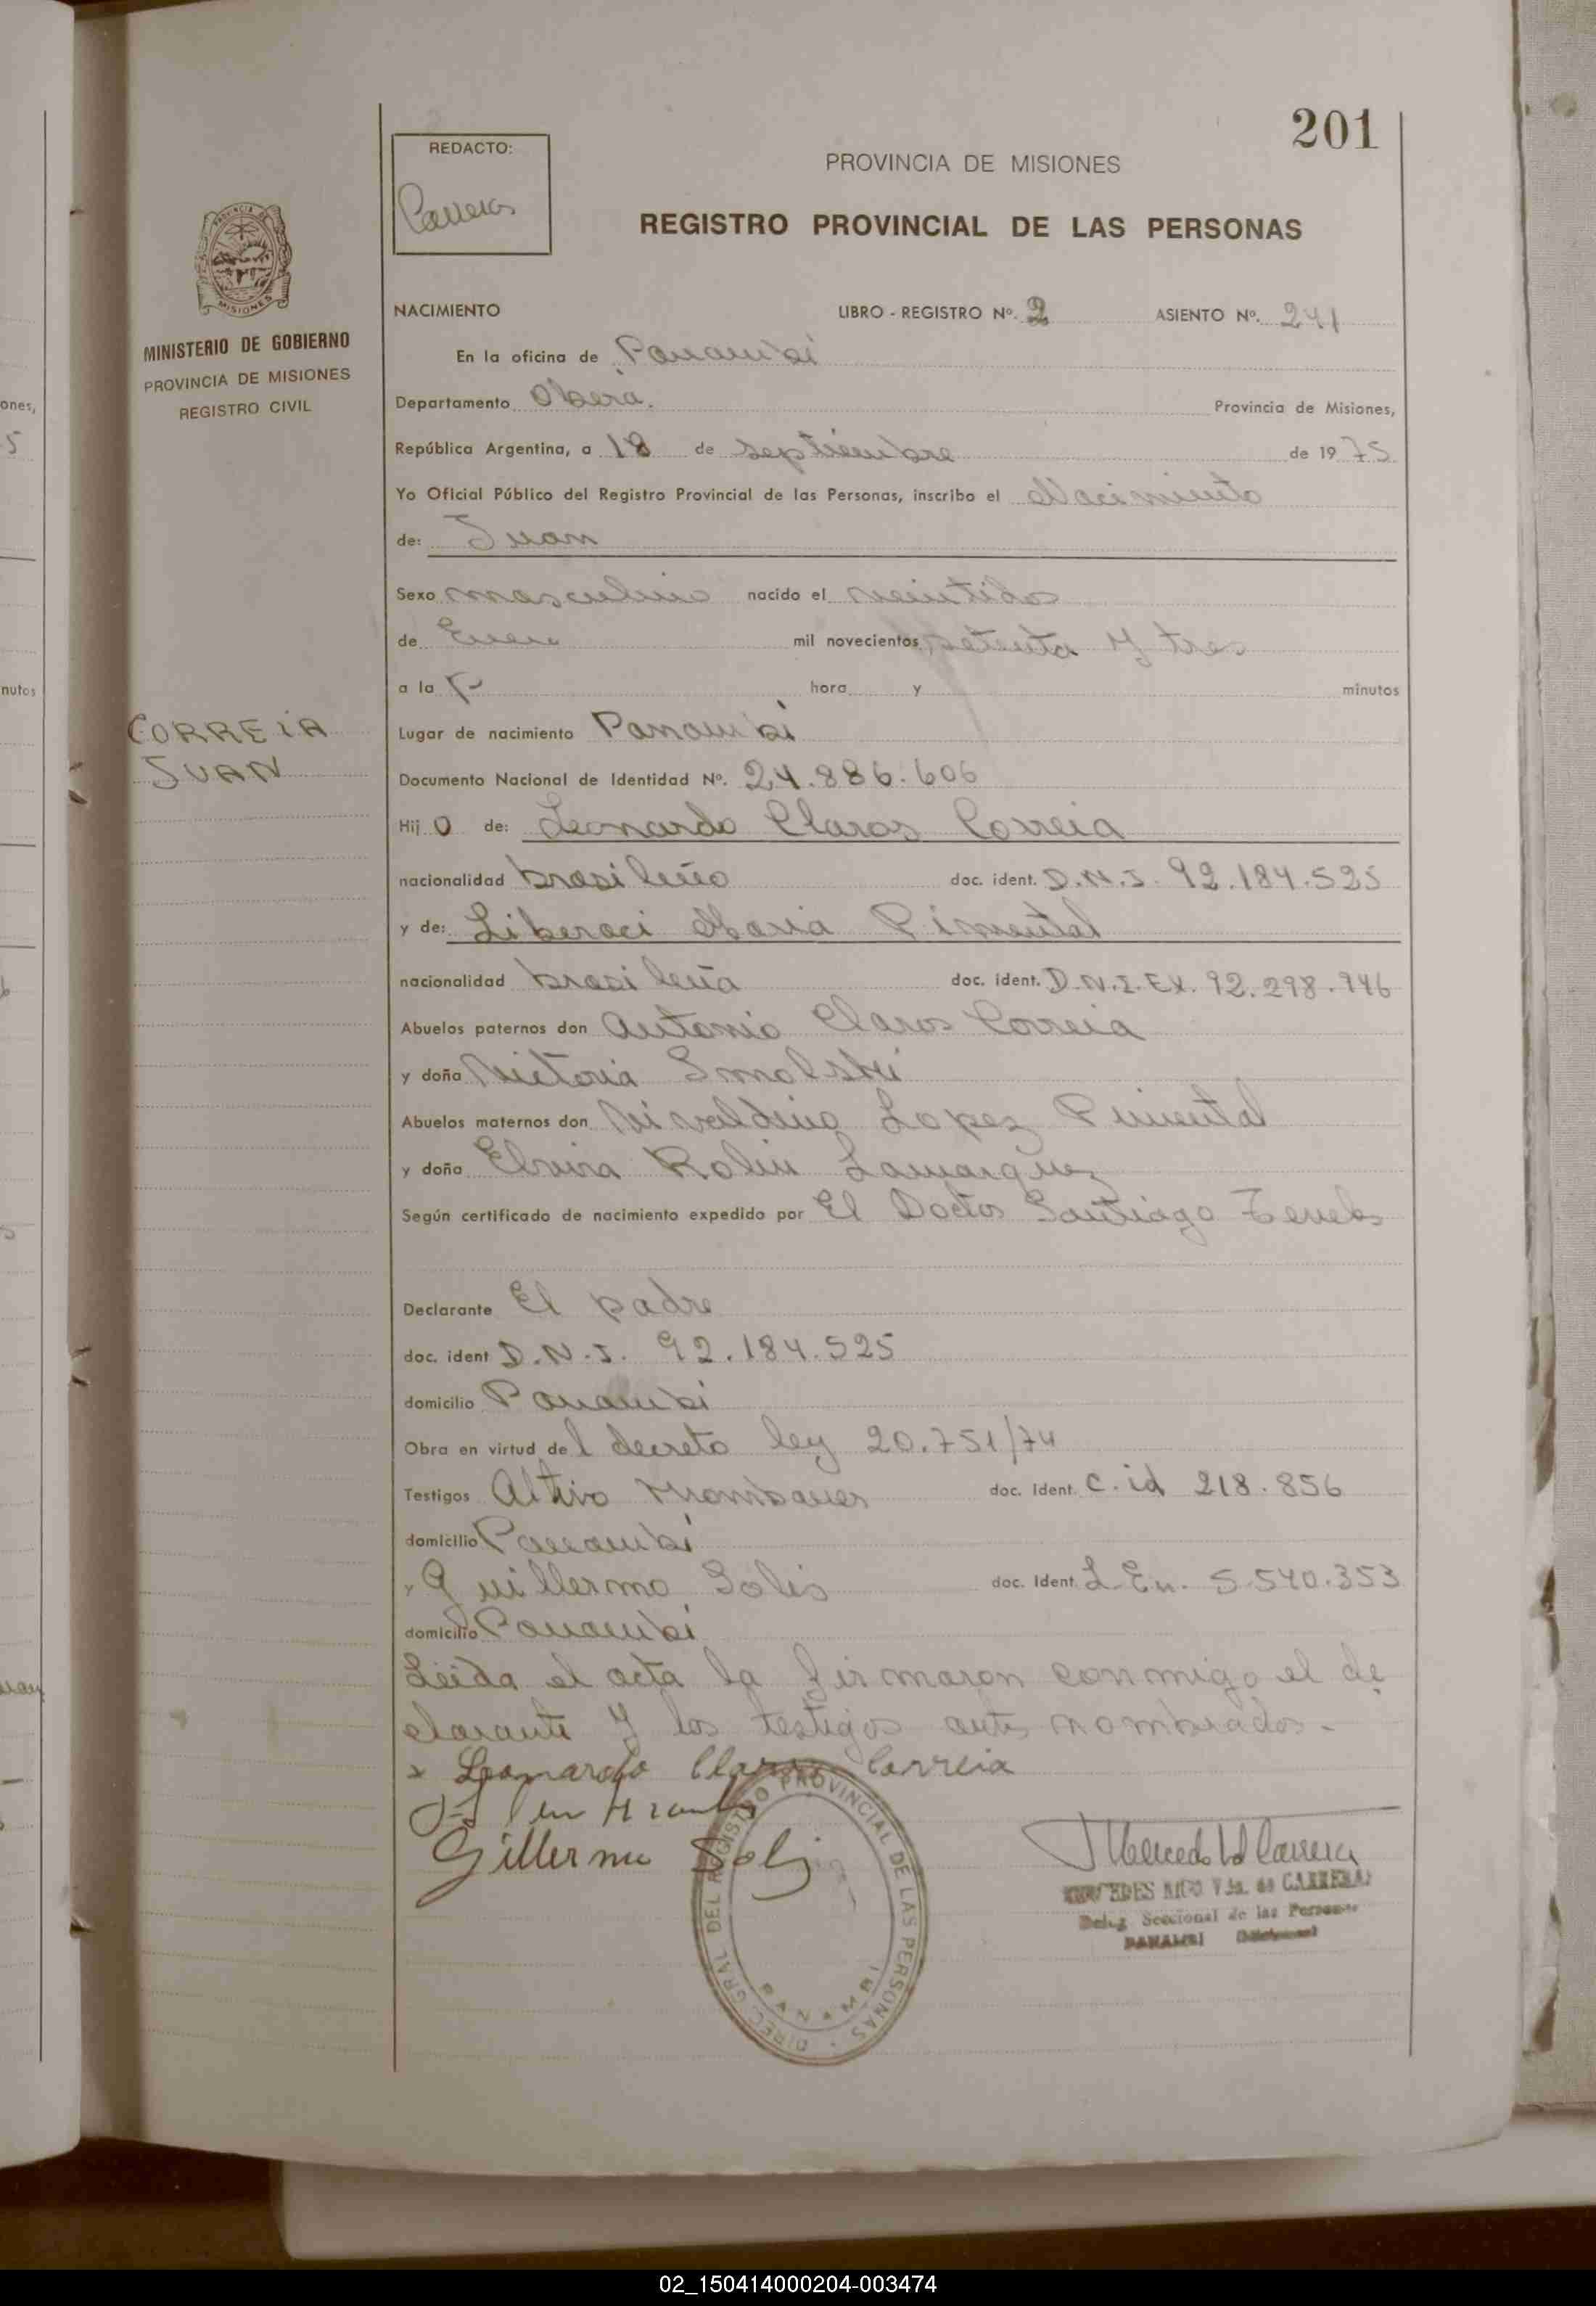 201
REDACTO:
Carreras
PROVINCIA DE MISIONES
REGISTRO PROVINCIAL DE LAS PERSONAS
MINISTERIO DE GOBIERNO
PROVINCIA DE MISIONES
REGISTRO CIVIL
NACIMIENTO LIBRO - REGISTRO Nº. 2 ASIENTO Nº. 241
En la oficina de Panambi
Departamento Obera. Provincia de Misiones,
República Argentina, a 18 de septiembre de 1975
Yo Oficial Público del Registro Provincial de las Personas, inscribo el Nacimiento
de: Juan
Sexo masculino nacido el veintidos
de Enero mil novecientos setenta y tres
a la hora y minutos
CORREIA
JUAN
Lugar de nacimiento Panambi
Documento Nacional de Identidad Nº. 24.886.606
Hij o de: Leonardo Claros Correia
nacionalidad brasileño doc. ident. D.N.I. 92.184.525
y de: Liberaci Maria Pimental
nacionalidad brasileña doc. ident. D.N.I.EX. 92.298.946
Abuelos paternos don Antonio Claros Correia
y doña Victoria Smolski
Abuelos maternos don Nivaldino Lopez Pimental
y doña Elvira Rolin
Según certificado de nacimiento expedido por El Doctor Santiago
Declarante El padre
doc. ident D.N.I. 92.184.525
domicilio Panambi
Obra en virtud del decreto ley 20.751/74
Testigos Altivo doc. Ident. C.id 218.856
domicilio Panambi
y Guillermo Solis doc. Ident. L.En. 5.540.353
domicilio Panambi
Leida el acta la firmaron conmigo el de
clarante y los testigos antes nombrados.-
x Leonardo Claros Correia
Gillermo Solis
DIREC. GRAL. DEL REGISTRO PROVINCIAL DE LAS PERSONAS
PANAMBI
MERCEDES RICO Vda. de CARRERAS
Deleg. Seccional de las Personas
PANAMBI (Misiones)
02_150414000204-003474